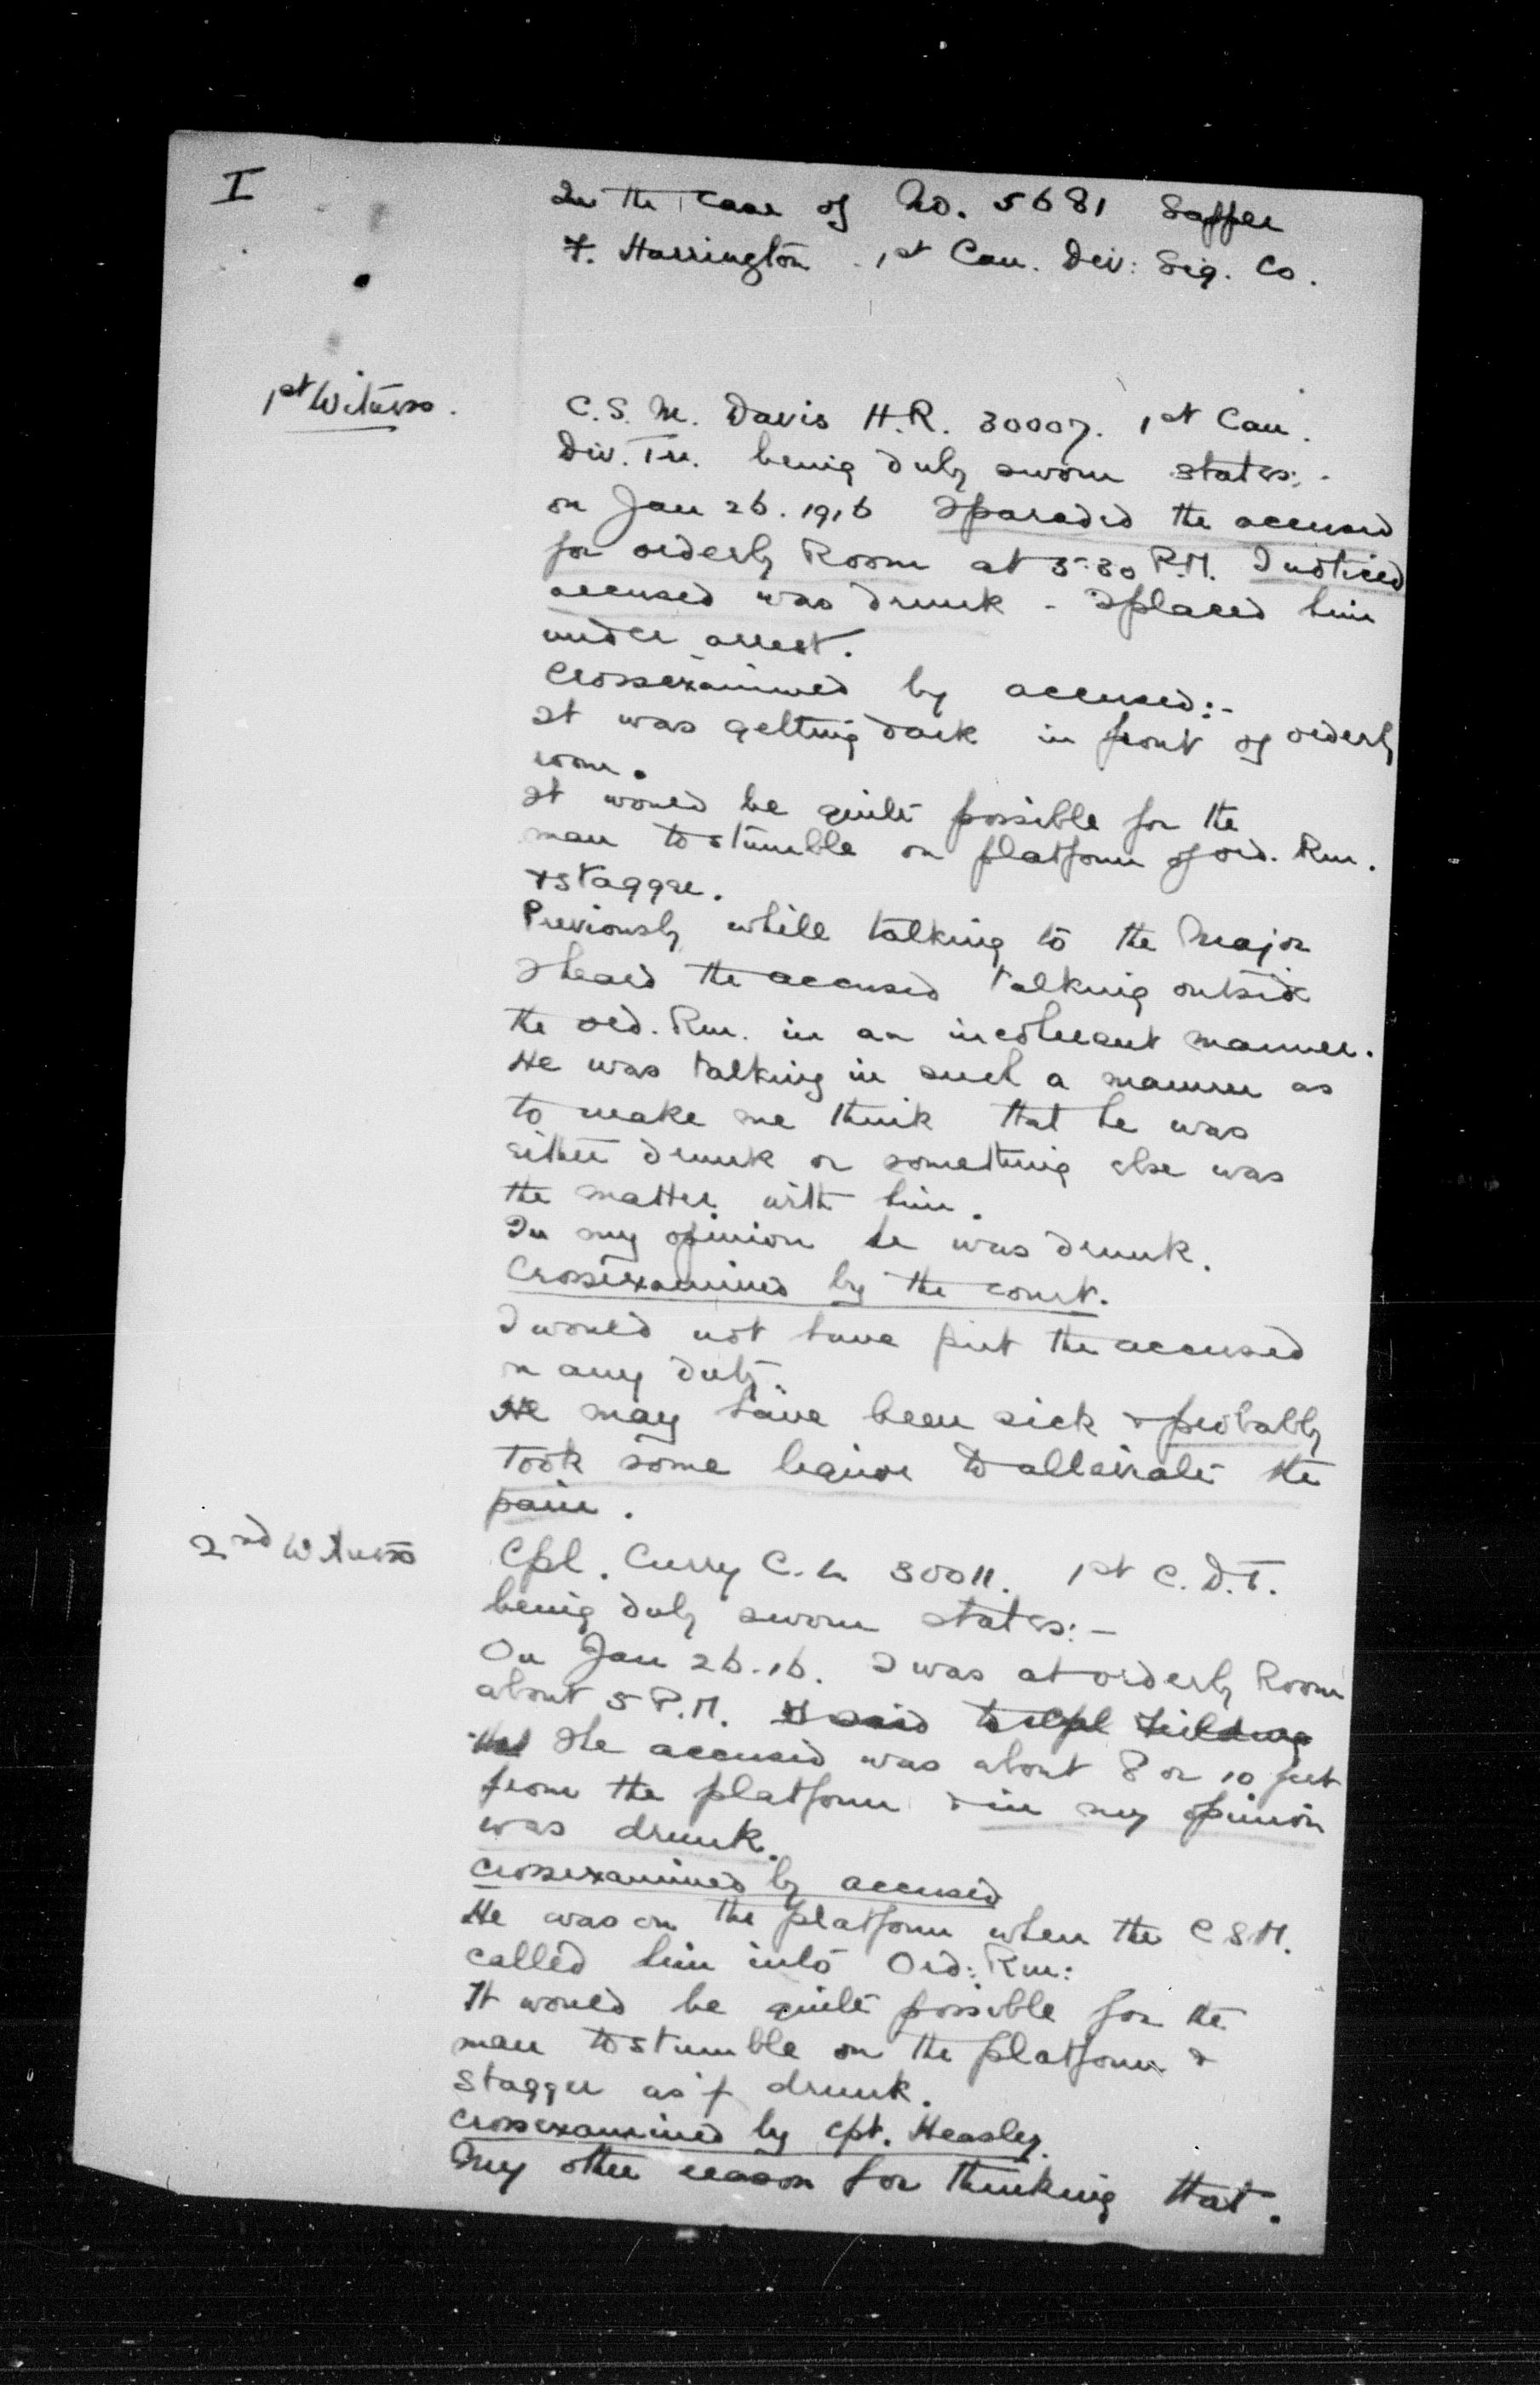 I
In the case of No. 5681 Sapper
F. Harrington. 1st Can. Div: Sig. Co.
1st Witness.
C.S.M. Davis H.R. 30007. 1st Can.
Div. Tn. being duly sworn states:-
on Jan 26. 1916 I paraded the accused
for orderly Room at 5:30 P.M. I noticed
accused was drunk - I placed him
under arrest.
Crossexamined by accused:-
It was getting dark in front of orderly
room.
It would be quite possible for the
man to stumble on platform of Ord. Rm.
& stagger.
Previously while talking to the Major
I heard the accused talking outside
the Ord. Rm. in an incoherent manner.
He was talking in such a manner as
to make me think that he was
either drunk or something else was
the matter with him.
In my opinion he was drunk.
Crossexamined by the court.
I would not have put the accused
on any duty.
He may have been sick & probably
took some liquor to alleivate the
pain.
2nd Witness
Cpl. Curry C. L. 30011. 1st C.D.T.
being duly sworn states:-
On Jan 26.16. I was at orderly Room
about 5 P.M. I said to Cpl Fielding
that The accused was about 8 or 10 feet
from the platform & in my opinion
was drunk.
Crossexamined by accused
He was on the platform when the C.S.M.
called him into Ord: Rm:
It would be quite possible for the
man to stumble on the platform &
stagger as if drunk.
Crossexamined by Cpt. Heasley.
Any other reason for thinking that.